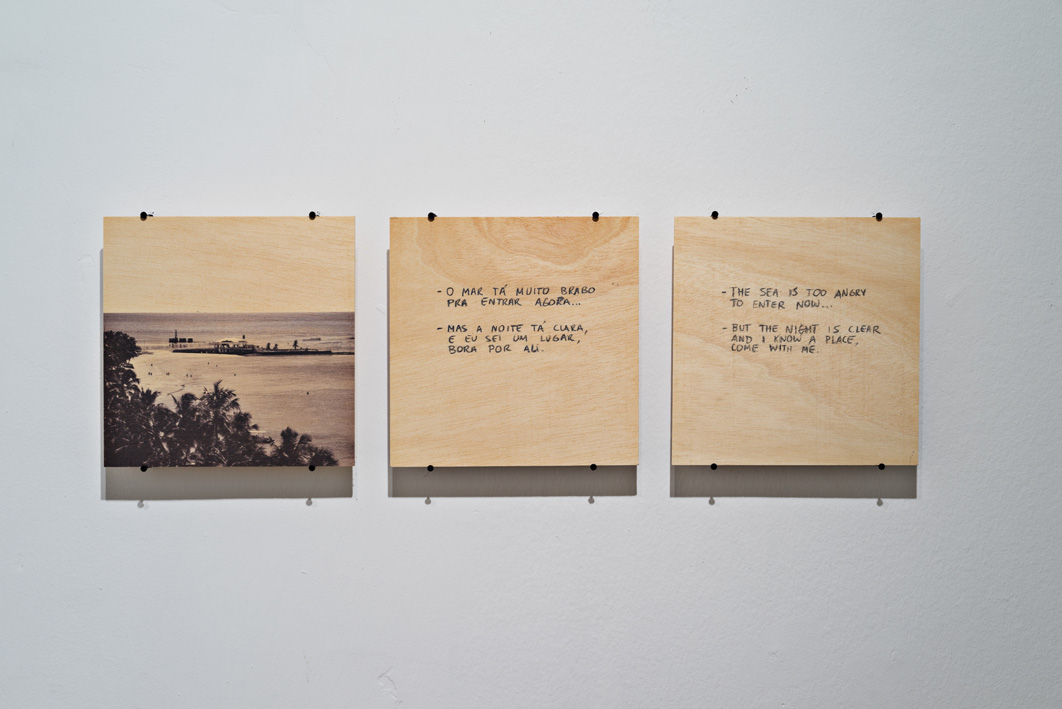 - O MAR TÁ MUITO BRABO
PRA ENTRAR AGORA...
- MAS A NOITE TÁ CLARA,
E EU SEI UM LUGAR,
BORA POR ALI.
- THE SEA IS TOO ANGRY
TO ENTER NOW...
- BUT THE NIGHT IS CLEAR
AND I KNOW A PLACE,
COME WITH ME.